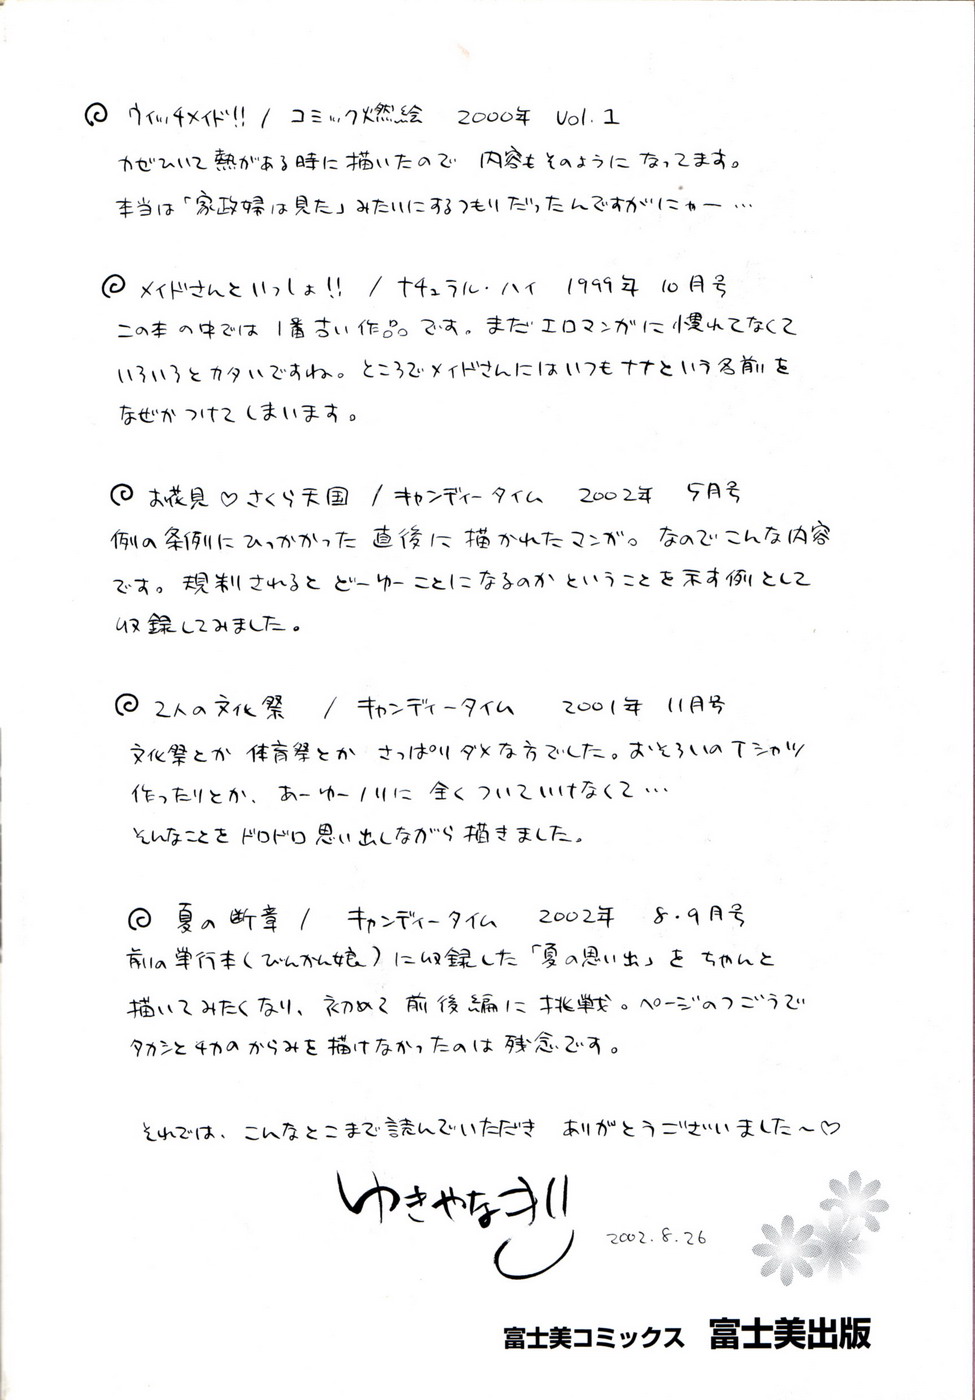 ウィッチメイド!! / コミック燃絵 2000年 Vol.1
カゼひいて熱がある時に描いたので 内容もそのようになってます。
本当は「家政婦は見た」みたいにするつもりだったんですがにゃー…
メイドさんといっしょ!! / ナチュラル・ハイ 1999年 10月号
この本の中では 1番古い作品です。まだエロマンガに慣れてなくて
いろいろとカタいですね。ところでメイドさんにはいつもナナという名前を
なぜかつけてしまいます。
お花見♡さくら天国 / キャンディータイム 2002年 5月号
例の条例にひっかかった直後に描かれたマンガ。なのでこんな内容
です。規制されるとどーゆーことになるのかということを示す例として
収録してみました。
2人の文化祭 / キャンディータイム 2001年 11月号
文化祭とか体育祭とかさっぱりダメな方でした。おそろいのTシャツ
作ったりとか、あーゆーノリに全くついていけなくて…
そんなことをドロドロ思い出しながら描きました。
夏の断章 / キャンディータイム 2002年 8・9月号
前の単行本(びんかん娘)に収録した「夏の思い出」をちゃんと
描いてみたくなり、初めて前後編に挑戦。ページのつごうで
タカシとチカのからみを描けなかったのは残念です。
それでは、こんなとこまで読んでいただきありがとうございました〜♡
ゆきやなぎ
2002.8.26
富士美コミックス 富士美出版